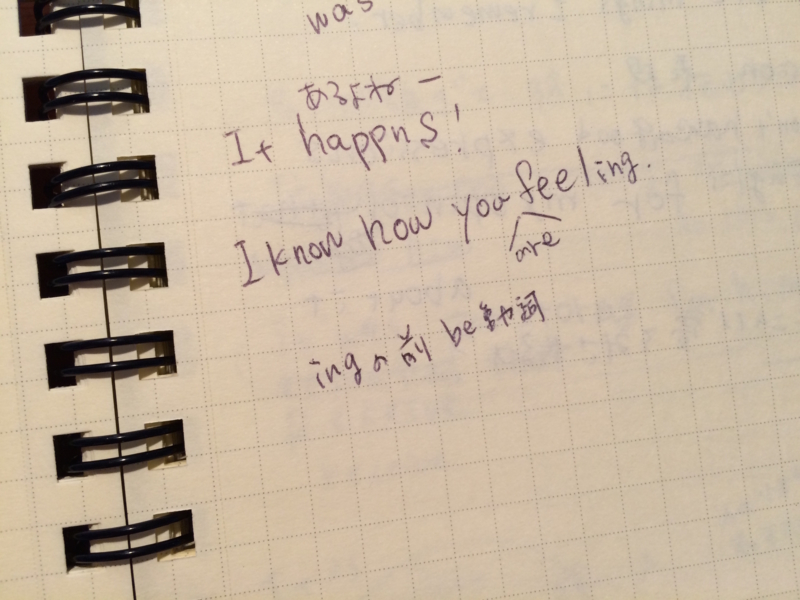 was
あるよねー
It happns!
I know how you feeling.
are
ingの前 be動詞